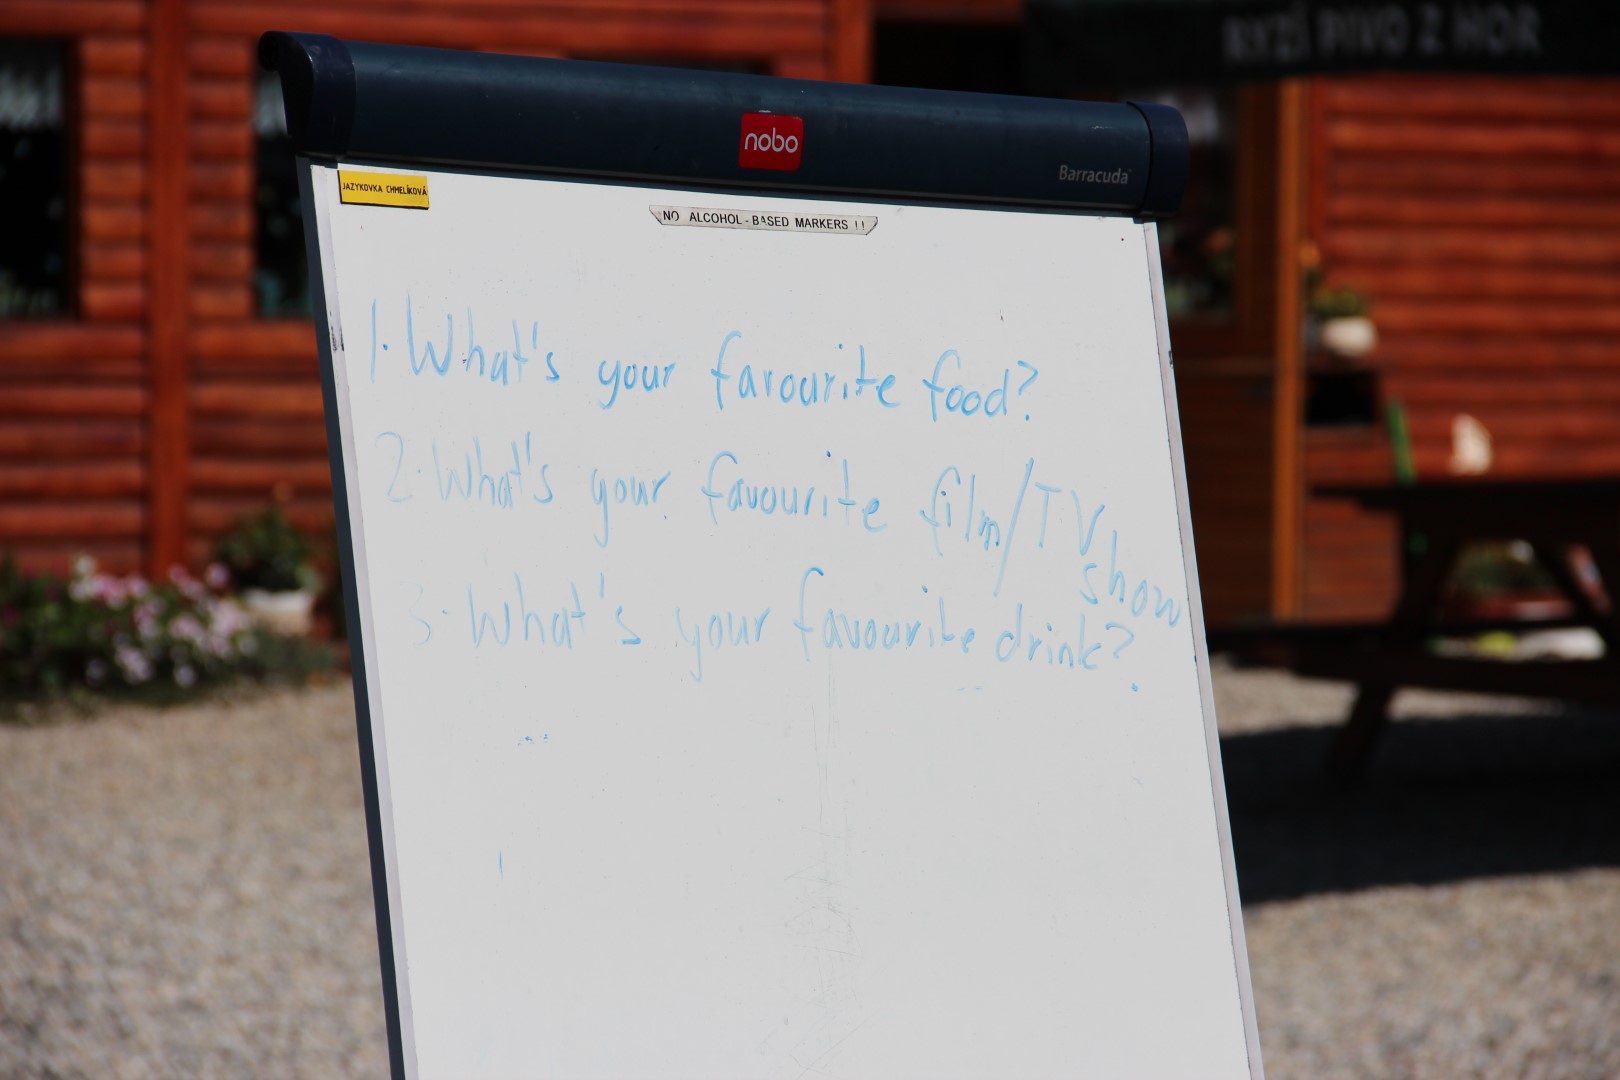 RYZÍ PIVO Z HOR
nobo
Barracuda
JAZYKOVKA CHMELÍKOVÁ
NO ALCOHOL-BASED MARKERS !!
1. What's your favourite food?
2. What's your favourite film/TV
show
3. What's your favourite drink?